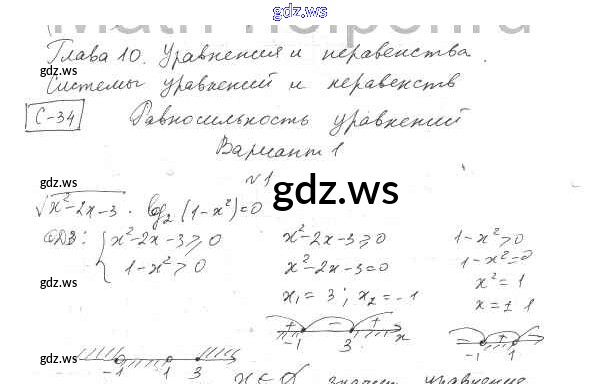 gdz.ws
Глава 10. Уравнения и неравенства.
gdz.ws
Системы уравнений и неравенств
С-34 Равносильность уравнений
Вариант 1
gdz.ws
№1
gdz.ws
√x²-2x-3 · log₂(1-x²)=0
gdz.ws
ОДЗ: { x²-2x-3≥0 x²-2x-3≥0 1-x²>0
1-x²>0 x²-2x-3=0 1-x²=0
gdz.ws
x₁=3; x₂=-1 x²=1
x=±1
+ - +
-1 3 x -1 1
gdz.ws
-1 1 3 x∈∅, значит уравнение